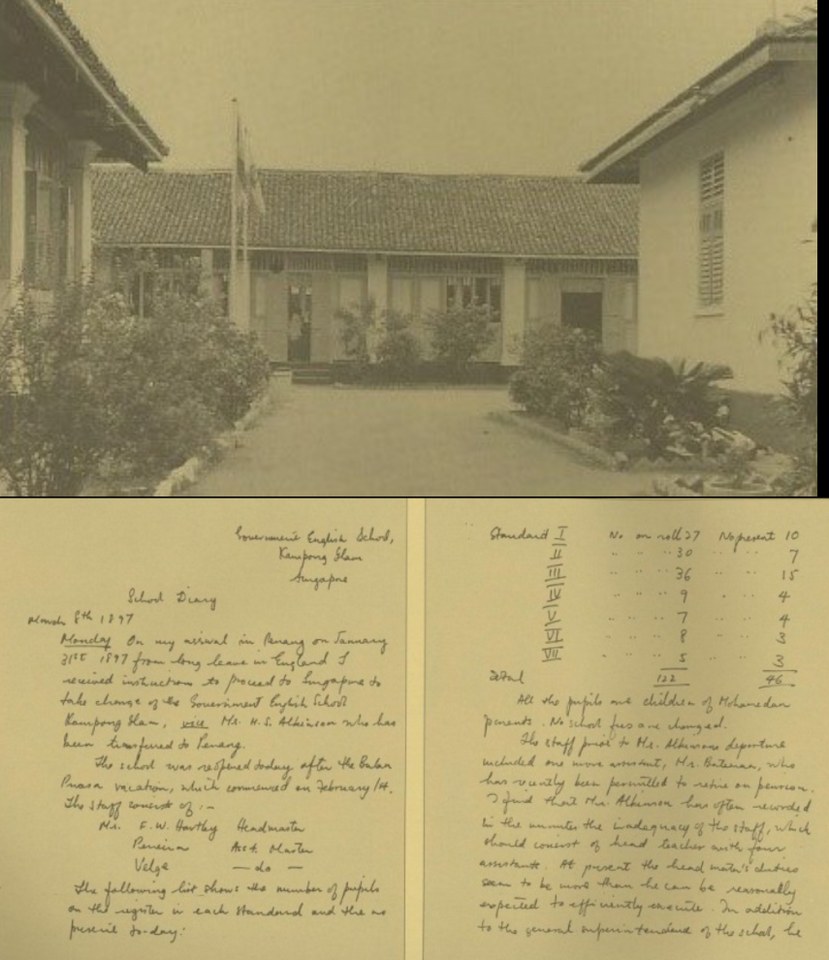 Government English School,
Kampong Glam
Singapore
School Diary
March 8th 1897
Monday On my arrival in Penang on January
31st 1897 from long leave in England I
received instructions to proceed to Singapore to
take charge of the Government English School
Kampong Glam, vice Mr. H.S. Atkinson who has
been transferred to Penang.
The school was reopened today after the Bulan
Puasa vacation, which commenced on February 14.
The staff consist of:-
Mr. F.W. Hartley Headmaster
Pereira Asst. Master
Velge — do —
The following list shows the number of pupils
on the register in each Standard and the no
present to-day:
Standard I No on roll 27 No present 10
II " " " 30 " " 7
III " " " 36 " " 15
IV " " " 9 " " 4
V " " " 7 " " 4
VI " " " 8 " " 3
VII " " 5 " " 3
Total 122 46
All the pupils are children of Mohamedan
parents. No school fees are charged.
The staff prior to Mr. Atkinsons departure
included one more assistant, Mr. who
has recently been permitted to retire on pension.
I find that Mr. Atkinson has often recorded
in the minutes the inadequacy of the staff, which
should consist of head teacher with four
assistants. At present the head duties
seem to be more than he can be reasonably
expected to efficiently execute. In addition
to the general superintendence of the school, he